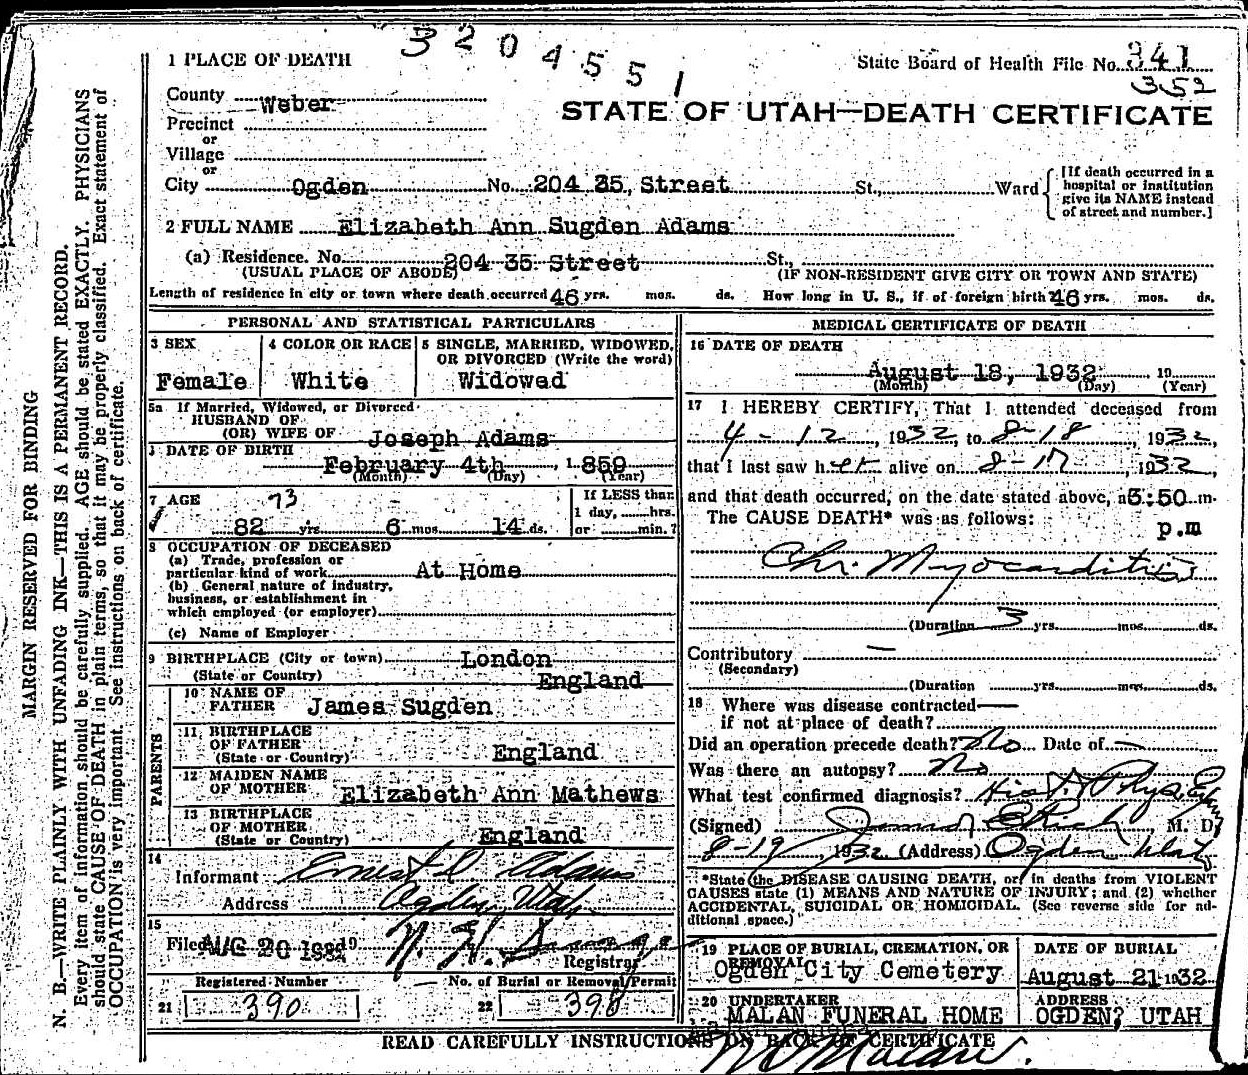 3204551
1 PLACE OF DEATH
State Board of Health File No. 341
352
County Weber
STATE OF UTAH—DEATH CERTIFICATE
Precinct
or
Village
or
City Ogden No. 204 35, Street St., Ward
[If death occurred in a hospital or institution give its NAME instead of street and number.]
2 FULL NAME Elizabeth Ann Sugden Adams
(a) Residence. No. 204 35 Street St.,
(USUAL PLACE OF ABODE) (IF NON-RESIDENT GIVE CITY OR TOWN AND STATE)
Length of residence in city or town where death occurred 46 yrs. mos. ds. How long in U. S., if of foreign birth? 46 yrs. mos. ds.
PERSONAL AND STATISTICAL PARTICULARS
3 SEX Female
4 COLOR OR RACE White
5 SINGLE, MARRIED, WIDOWED, OR DIVORCED (Write the word) Widowed
5a If Married, Widowed, or Divorced
HUSBAND OF
(OR) WIFE OF Joseph Adams
DATE OF BIRTH
February 4th, 1859
(Month) (Day) (Year)
7 AGE 73
82 yrs 6 mos. 14 ds.
If LESS than
1 day, hrs.
or min.?
8 OCCUPATION OF DECEASED
(a) Trade, profession or
particular kind of work At Home
(b) General nature of industry,
business, or establishment in
which employed (or employer)
(c) Name of Employer
9 BIRTHPLACE (City or town) London
(State or Country) England
PARENTS
10 NAME OF FATHER James Sugden
11 BIRTHPLACE OF FATHER
(State or Country) England
12 MAIDEN NAME OF MOTHER Elizabeth Ann Mathews
13 BIRTHPLACE OF MOTHER
(State or Country) England
14
Informant Ernest D Adams
Address Ogden, Utah
15
Filed AUG 20 1932 19
Registrar
Registered Number
21 390
No. of Burial or Removal Permit
22 398
MEDICAL CERTIFICATE OF DEATH
16 DATE OF DEATH
August 18, 1932 19
(Month) (Day) (Year)
17 I HEREBY CERTIFY, That I attended deceased from
4-12, 1932, to 8-18, 1932,
that I last saw her alive on 8-17, 1932,
and that death occurred, on the date stated above, at 3:50 m.
The CAUSE DEATH* was as follows: p.m
Chr. Myocarditis
(Duration 3 yrs. mos. ds.
Contributory —
(Secondary)
(Duration yrs. mos. ds.
18 Where was disease contracted—
if not at place of death?
Did an operation precede death? No Date of —
Was there an autopsy? No
What test confirmed diagnosis? Hist. & Phys. Ex
(Signed) M. D.
8-19, 1932 (Address) Ogden Utah
*State the DISEASE CAUSING DEATH, or in deaths from VIOLENT
CAUSES state (1) MEANS AND NATURE OF INJURY; and (2) whether
ACCIDENTAL, SUICIDAL OR HOMICIDAL. (See reverse side for ad-
ditional space.)
19 PLACE OF BURIAL, CREMATION, OR REMOVAL
Ogden City Cemetery
DATE OF BURIAL
August 21 1932
20 UNDERTAKER
MALAN FUNERAL HOME
ADDRESS
OGDEN, UTAH
READ CAREFULLY INSTRUCTIONS ON BACK OF CERTIFICATE
Malan.
MARGIN RESERVED FOR BINDING
N. B.—WRITE PLAINLY WITH UNFADING INK—THIS IS A PERMANENT RECORD.
Every item of information should be carefully supplied. AGE should be stated EXACTLY. PHYSICIANS
should state CAUSE OF DEATH in plain terms, so that it may be properly classified. Exact statement of
OCCUPATION is very important. See instructions on back of certificate.